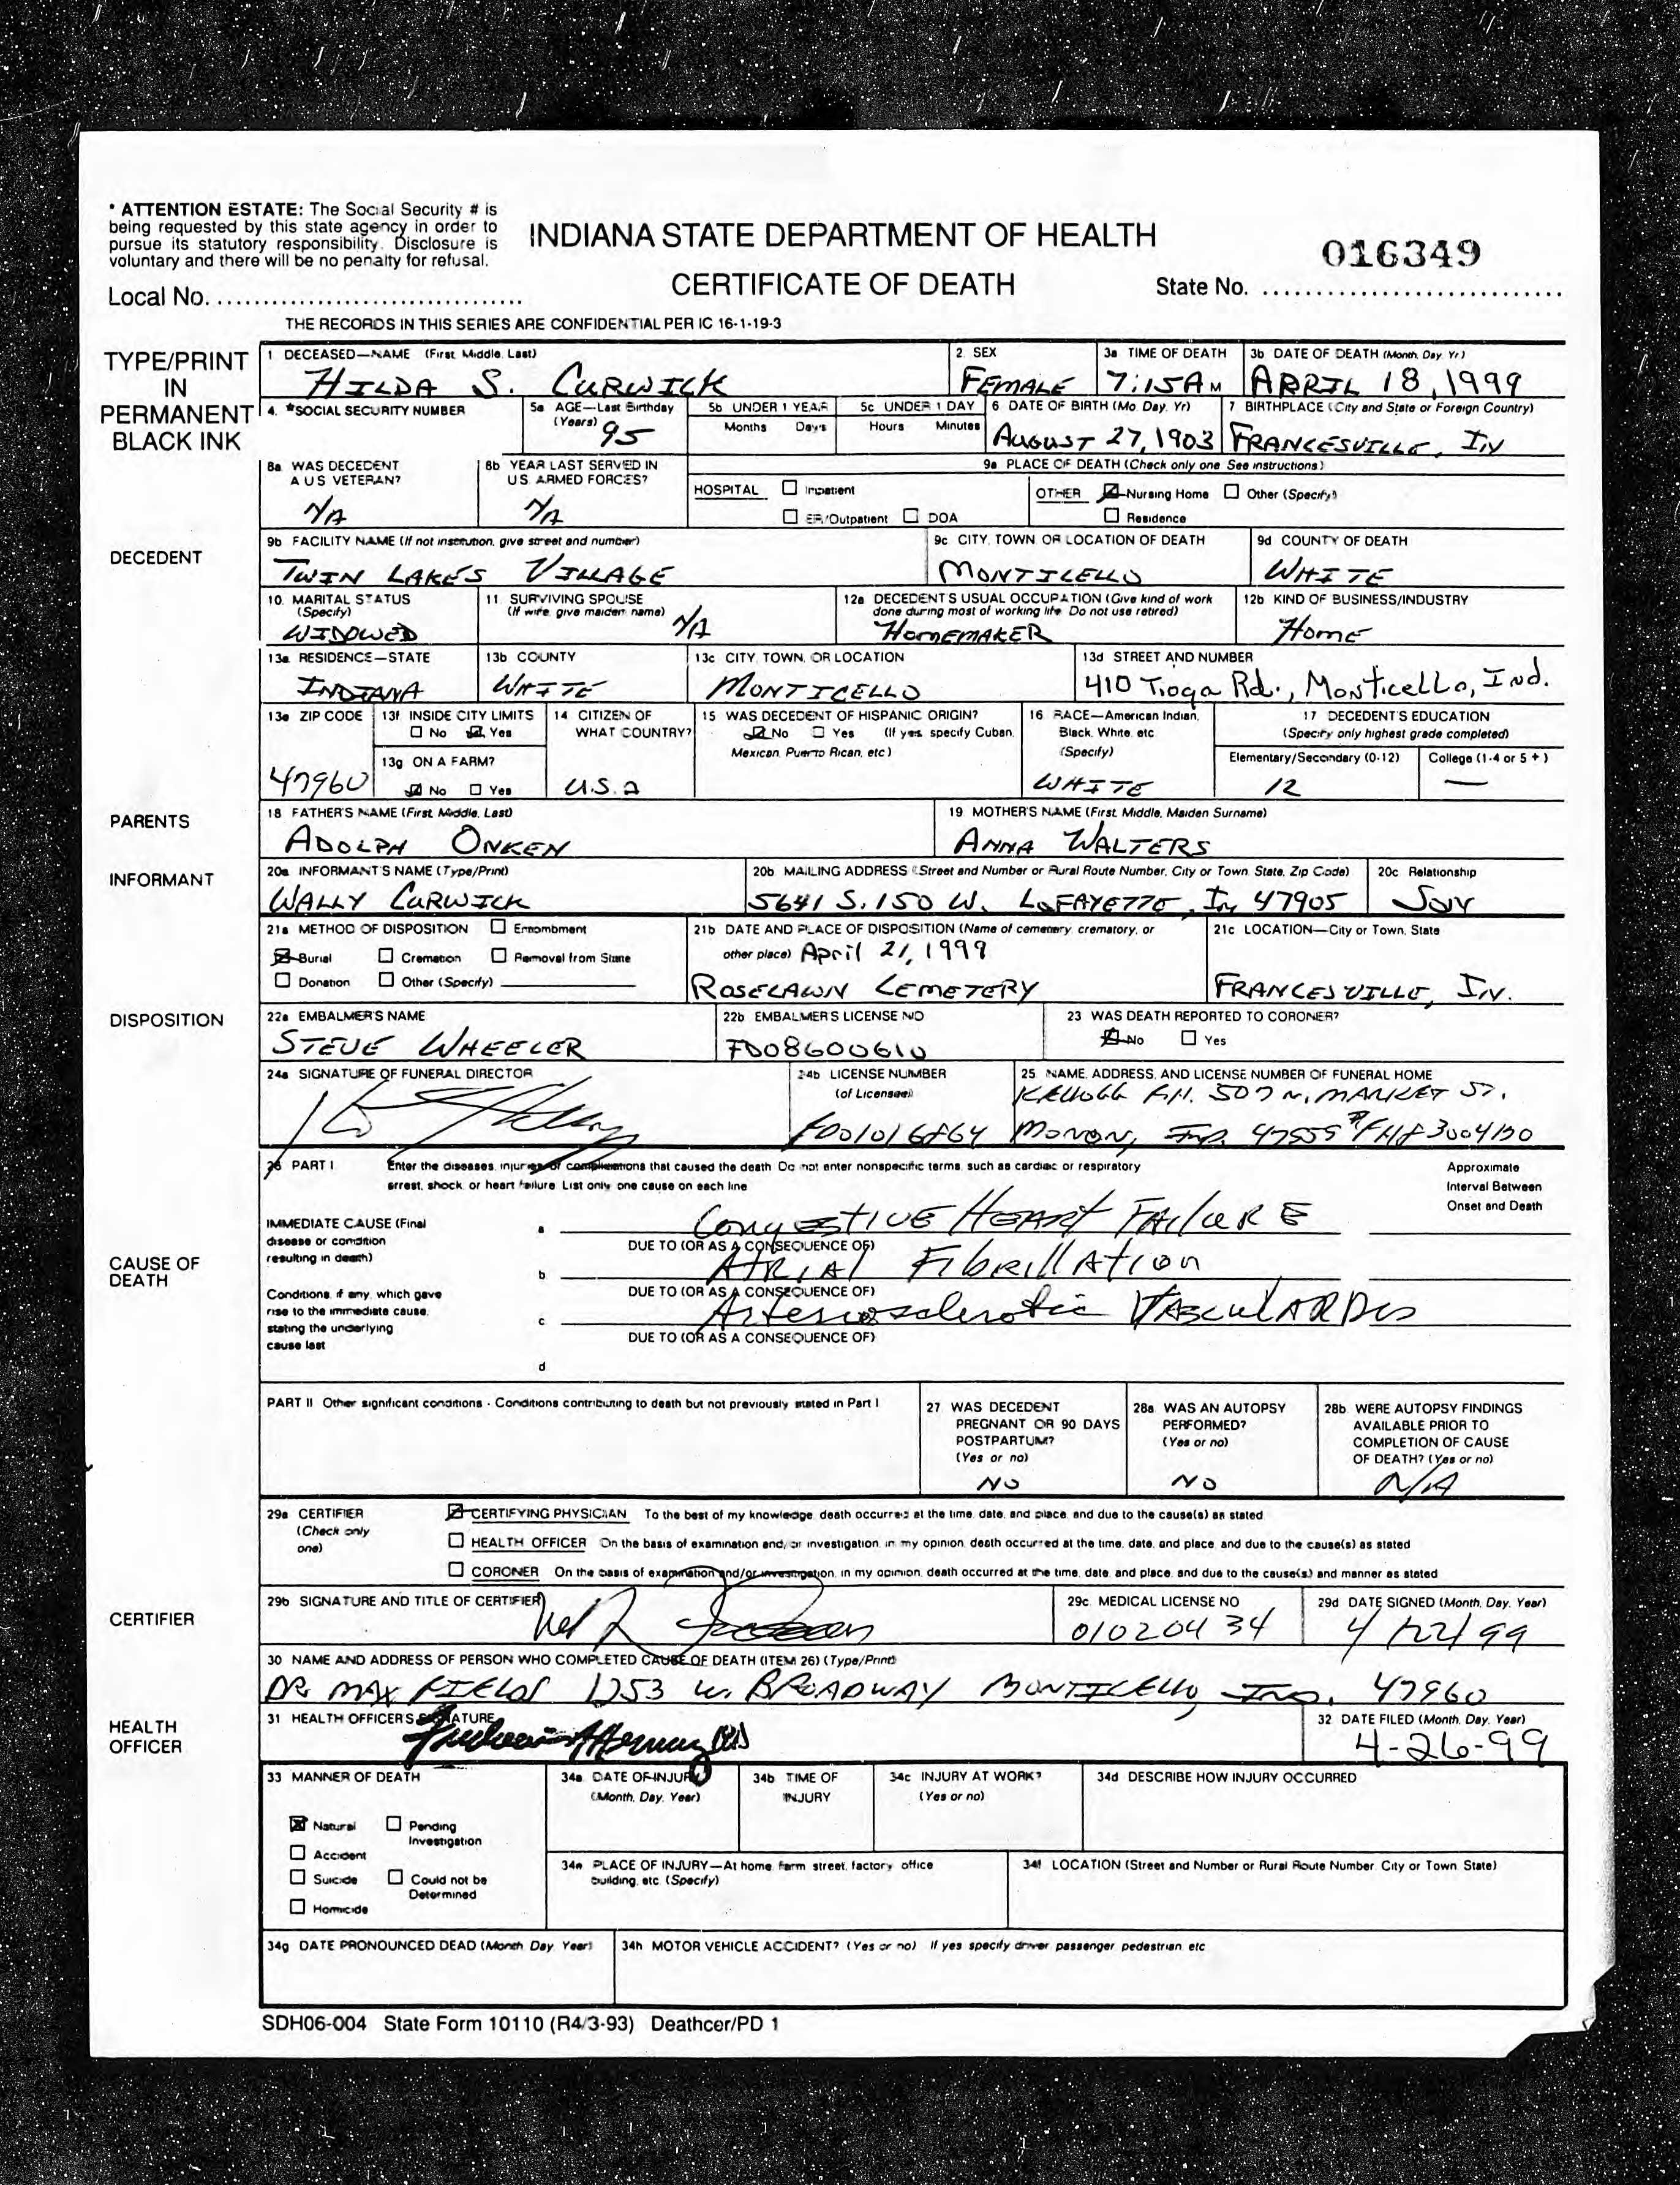 * ATTENTION ESTATE: The Social Security # is
being requested by this state agency in order to
pursue its statutory responsibility. Disclosure is
voluntary and there will be no penalty for refusal.
INDIANA STATE DEPARTMENT OF HEALTH
CERTIFICATE OF DEATH
016349
Local No. ..................................
State No. ..............................
THE RECORDS IN THIS SERIES ARE CONFIDENTIAL PER IC 16-1-19-3
TYPE/PRINT
IN
PERMANENT
BLACK INK
1 DECEASED—NAME (First, Middle, Last)
HILDA S. CURWICK
2. SEX
FEMALE
3a TIME OF DEATH
7:15 AM
3b DATE OF DEATH (Month, Day, Yr.)
APRIL 18, 1999
4. *SOCIAL SECURITY NUMBER
5a AGE—Last Birthday
(Years)
95
5b UNDER 1 YEAR
Months Days
5c UNDER 1 DAY
Hours Minutes
6 DATE OF BIRTH (Mo. Day, Yr)
AUGUST 27, 1903
7 BIRTHPLACE (City and State or Foreign Country)
FRANCESVILLE, IN
DECEDENT
8a WAS DECEDENT
A U S VETERAN?
N/A
8b YEAR LAST SERVED IN
U S ARMED FORCES?
N/A
9a PLACE OF DEATH (Check only one See instructions)
HOSPITAL
Inpatient
ER/Outpatient DOA
OTHER
Nursing Home Other (Specify)
Residence
9b FACILITY NAME (If not institution, give street and number)
TWIN LAKES VILLAGE
9c CITY, TOWN OR LOCATION OF DEATH
MONTICELLO
9d COUNTY OF DEATH
WHITE
10. MARITAL STATUS
(Specify)
WIDOWED
11. SURVIVING SPOUSE
(If wife, give maiden name)
N/A
12a DECEDENT'S USUAL OCCUPATION (Give kind of work
done during most of working life Do not use retired)
HOMEMAKER
12b KIND OF BUSINESS/INDUSTRY
HOME
13a RESIDENCE—STATE
INDIANA
13b COUNTY
WHITE
13c CITY, TOWN, OR LOCATION
MONTICELLO
13d STREET AND NUMBER
410 Tioga Rd., Monticello, Ind.
13e ZIP CODE
47960
13f INSIDE CITY LIMITS
No Yes
13g ON A FARM?
No Yes
14 CITIZEN OF
WHAT COUNTRY?
U.S.A
15 WAS DECEDENT OF HISPANIC ORIGIN?
No Yes (If yes, specify Cuban,
Mexican, Puerto Rican, etc)
16 RACE—American Indian,
Black, White, etc
(Specify)
WHITE
17 DECEDENT'S EDUCATION
(Specify only highest grade completed)
Elementary/Secondary (0-12) College (1-4 or 5 +)
12 —
PARENTS
18 FATHER'S NAME (First, Middle, Last)
ADOLPH ONKEN
19 MOTHER'S NAME (First, Middle, Maiden Surname)
ANNA WALTERS
INFORMANT
20a INFORMANT'S NAME (Type/Print)
WALLY CURWICK
20b MAILING ADDRESS (Street and Number or Rural Route Number, City or Town, State, Zip Code)
5641 S. 150 W. LAFAYETTE, IN 47905
20c Relationship
SON
DISPOSITION
21a METHOD OF DISPOSITION Entombment
Burial Cremation Removal from State
Donation Other (Specify)
21b DATE AND PLACE OF DISPOSITION (Name of cemetery, crematory, or
other place) April 21, 1999
ROSELAWN CEMETERY
21c LOCATION—City or Town, State
FRANCESVILLE, IN.
22a EMBALMER'S NAME
STEVE WHEELER
22b EMBALMER'S LICENSE NO
FD08600610
23 WAS DEATH REPORTED TO CORONER?
No Yes
24a SIGNATURE OF FUNERAL DIRECTOR
24b LICENSE NUMBER
(of Licensee)
25 NAME, ADDRESS, AND LICENSE NUMBER OF FUNERAL HOME
KELLOGG F.H. 507 N. MARKET ST.
MONON, IND.
CAUSE OF
DEATH
26 PART I Enter the diseases, injuries or complications that caused the death Do not enter nonspecific terms, such as cardiac or respiratory
arrest, shock, or heart failure List only one cause on each line
Approximate
Interval Between
Onset and Death
IMMEDIATE CAUSE (Final
disease or condition
resulting in death)
a Congestive Heart Failure
DUE TO (OR AS A CONSEQUENCE OF)
b Atrial Fibrillation
Conditions, if any, which gave
rise to the immediate cause,
stating the underlying
cause last
DUE TO (OR AS A CONSEQUENCE OF)
c Arteriosclerotic Vascular Dis
DUE TO (OR AS A CONSEQUENCE OF)
d
PART II Other significant conditions - Conditions contributing to death but not previously stated in Part I
27 WAS DECEDENT
PREGNANT OR 90 DAYS
POSTPARTUM?
(Yes or no)
NO
28a WAS AN AUTOPSY
PERFORMED?
(Yes or no)
NO
28b WERE AUTOPSY FINDINGS
AVAILABLE PRIOR TO
COMPLETION OF CAUSE
OF DEATH? (Yes or no)
N/A
CERTIFIER
29a CERTIFIER
(Check only
one)
CERTIFYING PHYSICIAN To the best of my knowledge, death occurred at the time, date, and place, and due to the cause(s) as stated
HEALTH OFFICER On the basis of examination and/or investigation, in my opinion, death occurred at the time, date, and place, and due to the cause(s) as stated
CORONER On the basis of examination and/or investigation, in my opinion, death occurred at the time, date, and place, and due to the cause(s) and manner as stated
29b SIGNATURE AND TITLE OF CERTIFIER
29c MEDICAL LICENSE NO
01020434
29d DATE SIGNED (Month, Day, Year)
4/22/99
30 NAME AND ADDRESS OF PERSON WHO COMPLETED CAUSE OF DEATH (ITEM 26) (Type/Print)
DR. MAX FIELDS 1253 W. BROADWAY MONTICELLO, IND. 47960
HEALTH
OFFICER
31 HEALTH OFFICER'S SIGNATURE
32 DATE FILED (Month, Day, Year)
4-26-99
33 MANNER OF DEATH
Natural Pending
Investigation
Accident
Suicide Could not be
Determined
Homicide
34a DATE OF INJURY
(Month, Day, Year)
34b TIME OF
INJURY
34c INJURY AT WORK?
(Yes or no)
34d DESCRIBE HOW INJURY OCCURRED
34e PLACE OF INJURY—At home, farm, street, factory, office
building, etc (Specify)
34f LOCATION (Street and Number or Rural Route Number, City or Town, State)
34g DATE PRONOUNCED DEAD (Month, Day, Year)
34h MOTOR VEHICLE ACCIDENT? (Yes or no) If yes specify driver, passenger, pedestrian, etc
SDH06-004 State Form 10110 (R4/3-93) Deathcer/PD 1